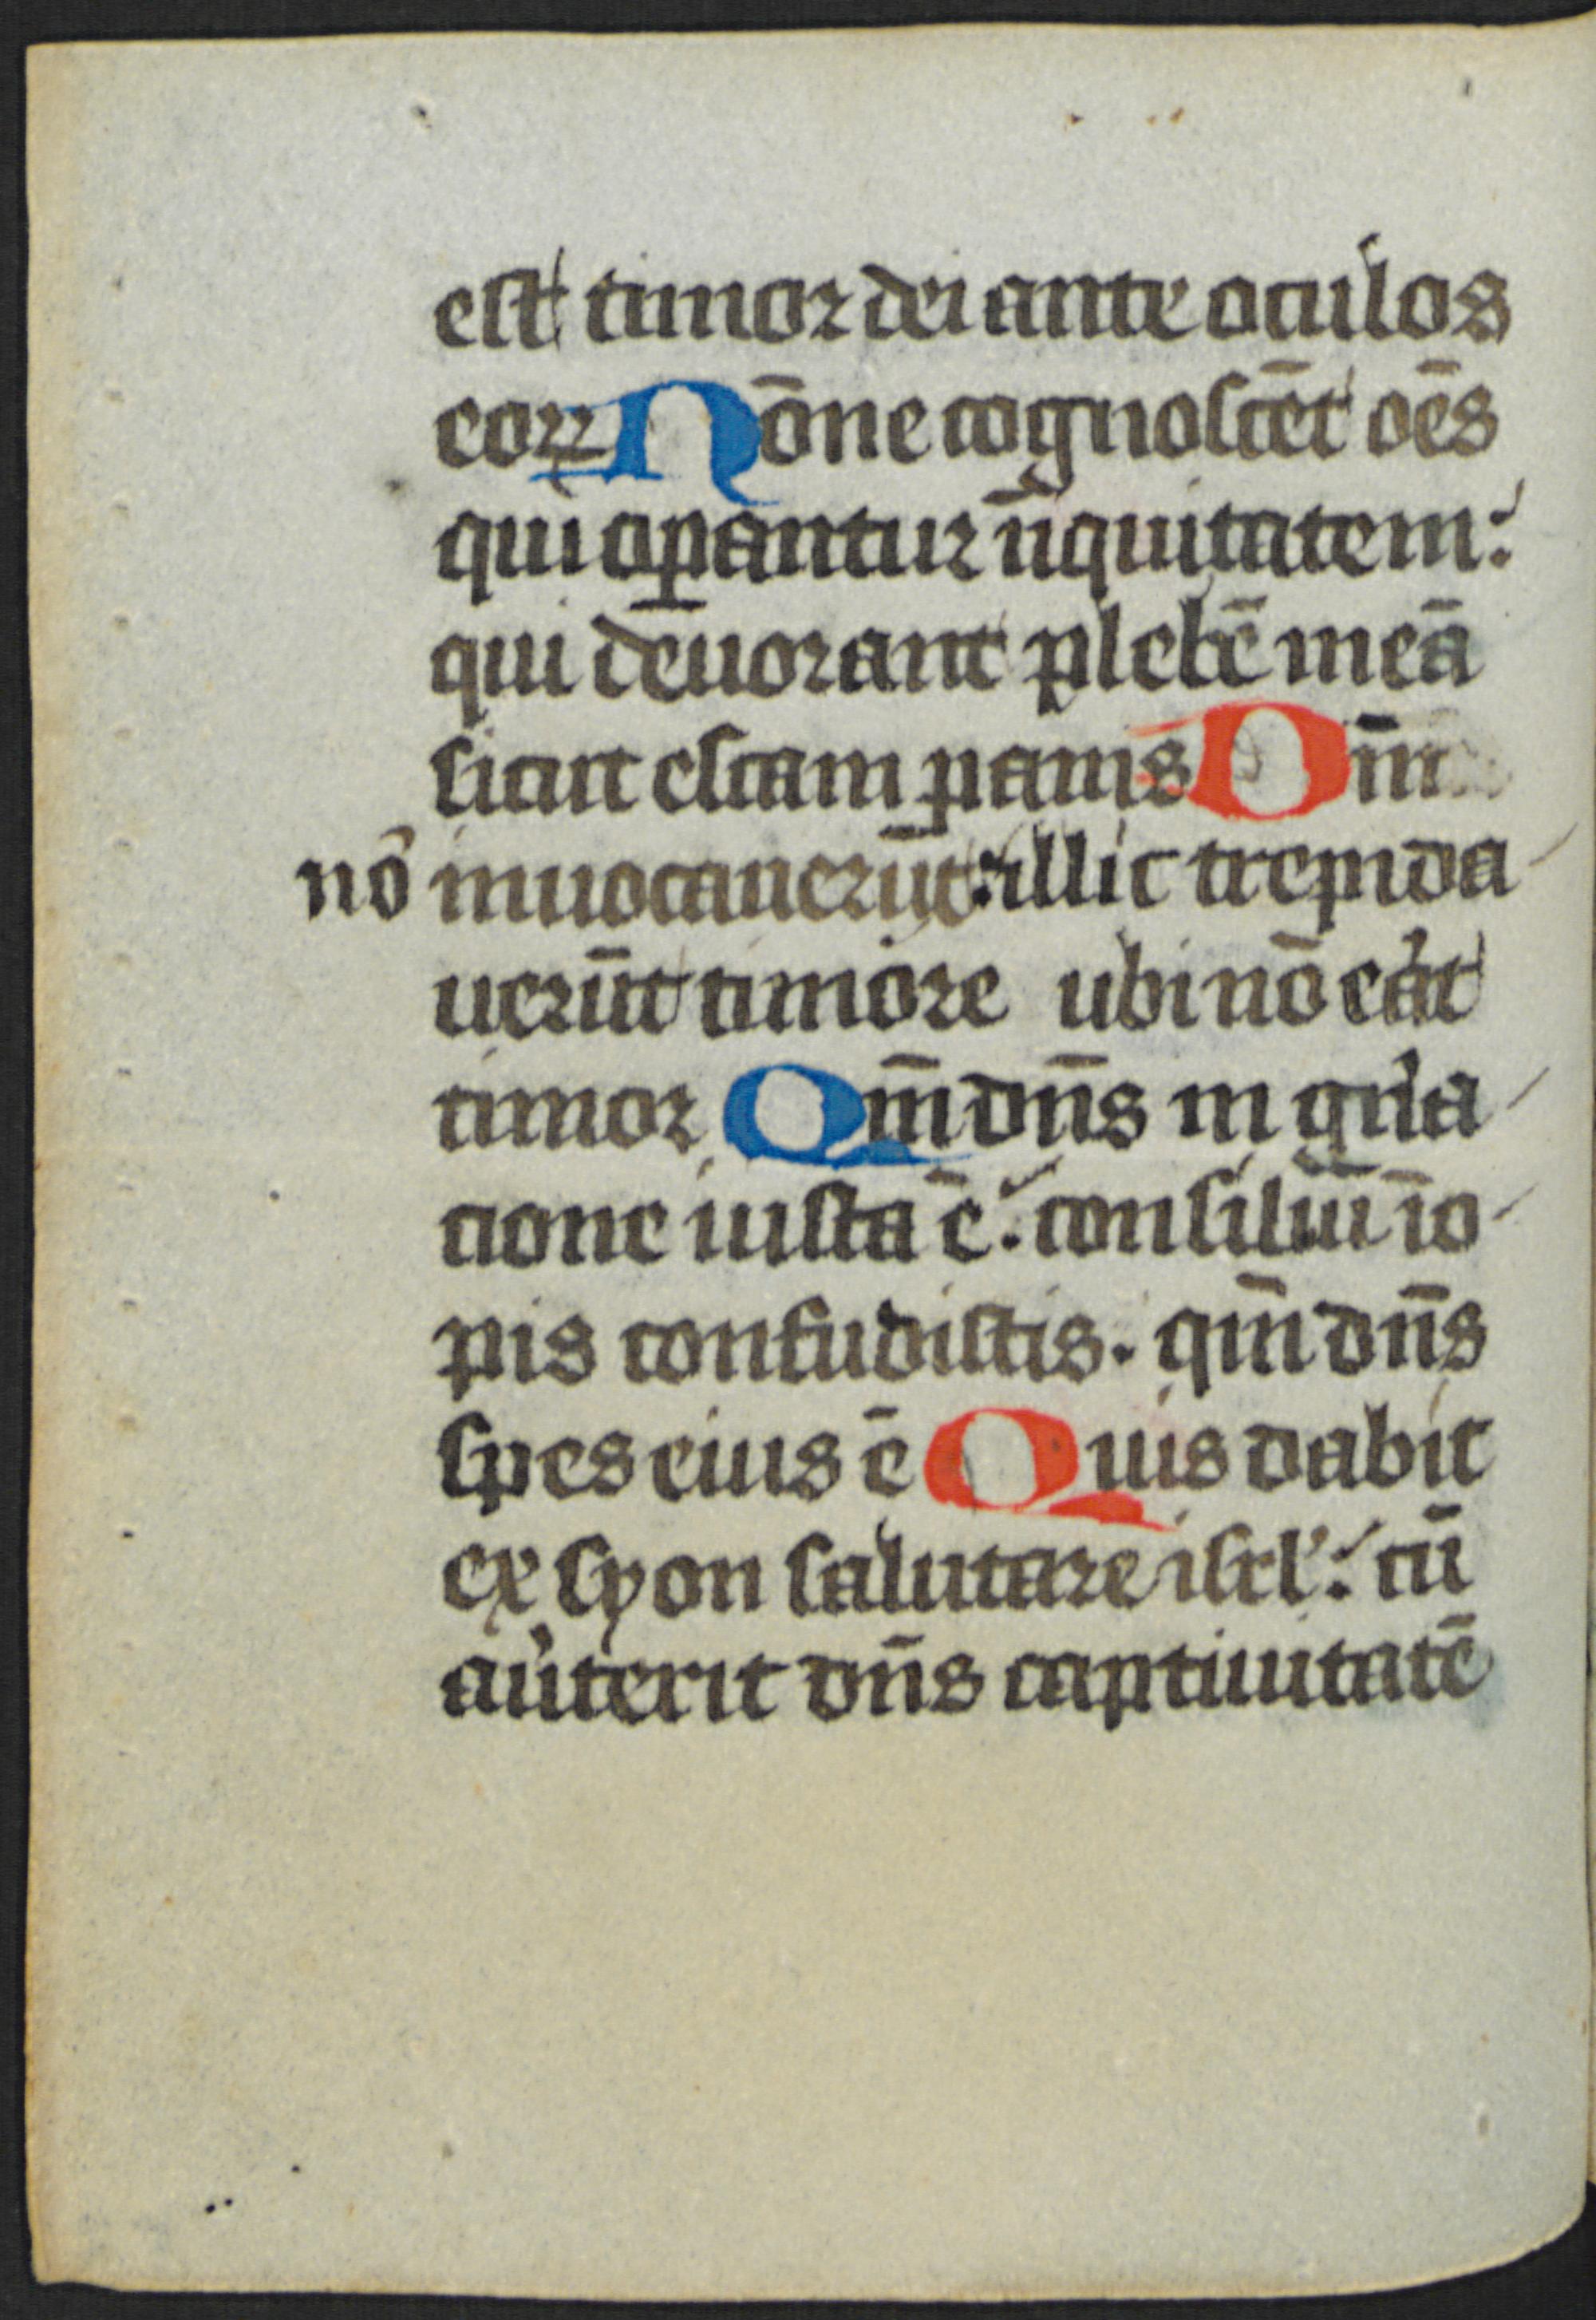 est timor dei ante oculos
eoꝝ Nōne cognoscēt oēs
qui oꝑantur īiquitatem:
qui deuorant plebē meā
sicut escam panis Dm̄
nō inuocauerūt: illic trepida
uerūt timore ubi nō erat
timor Qm̄ dn̄s in gn̄a
cione iusta ē: consiliū īo
pis confudistis. qm̄ dn̄s
spes eius ē Quis dabit
ex syon salutare isrl': cū
auerterit dn̄s captiuitatē